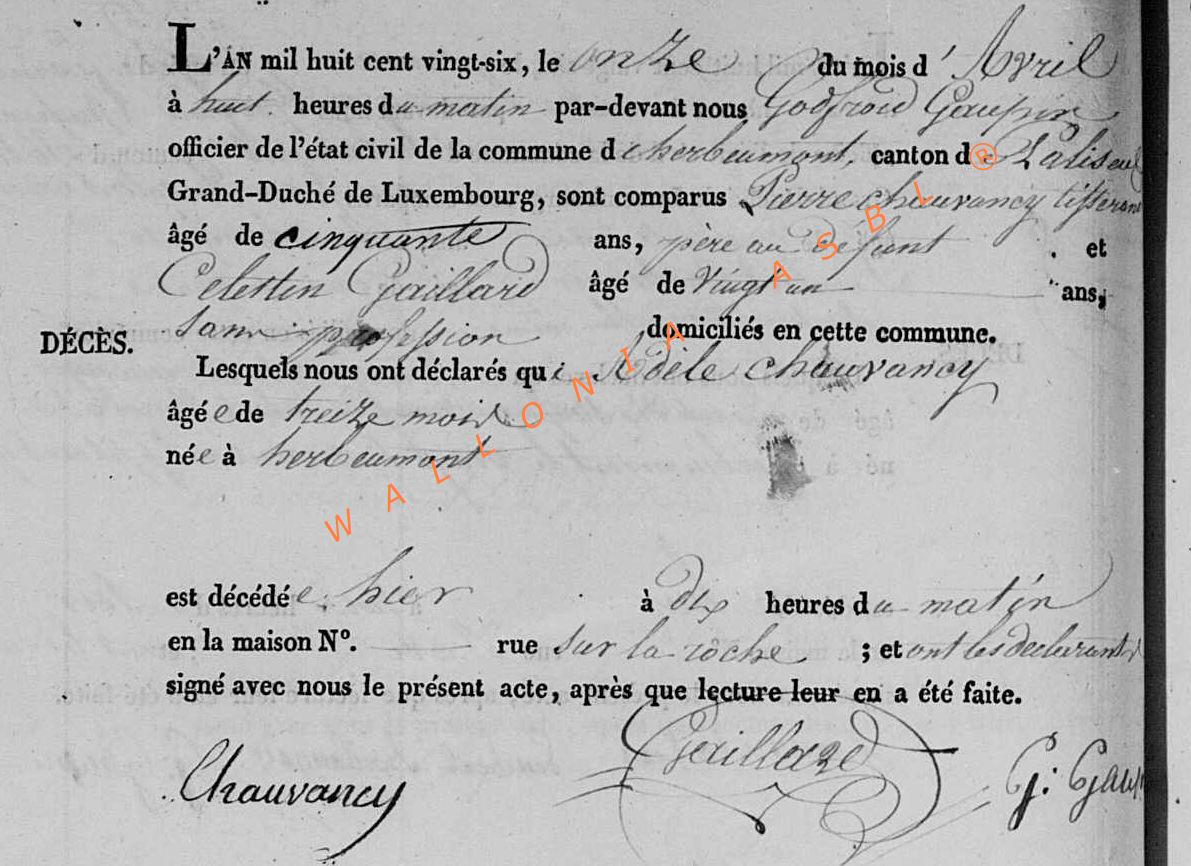 L'AN mil huit cent vingt-six, le onze du mois d'Avril
à huit heures du matin par-devant nous Godfroid Gaupin
officier de l'état civil de la commune d'herbeumont, canton de Paliseul
Grand-Duché de Luxembourg, sont comparus Pierre chauvancy tisserand
âgé de cinquante ans, père au defunt . et
Celestin Gaillard âgé de vingt un ans,
sans profession domiciliés en cette commune.
DÉCÈS.
Lesquels nous ont déclarés qui Adèle chauvancy
âgée de treize mois
née à herbeumont
est décédée hier à dix heures du matin
en la maison N°. rue sur la roche ; et ont les declarants
signé avec nous le présent acte, après que lecture leur en a été faite.
Chauvancy Gaillard G: Gaup
WALLONIA ASBL ®